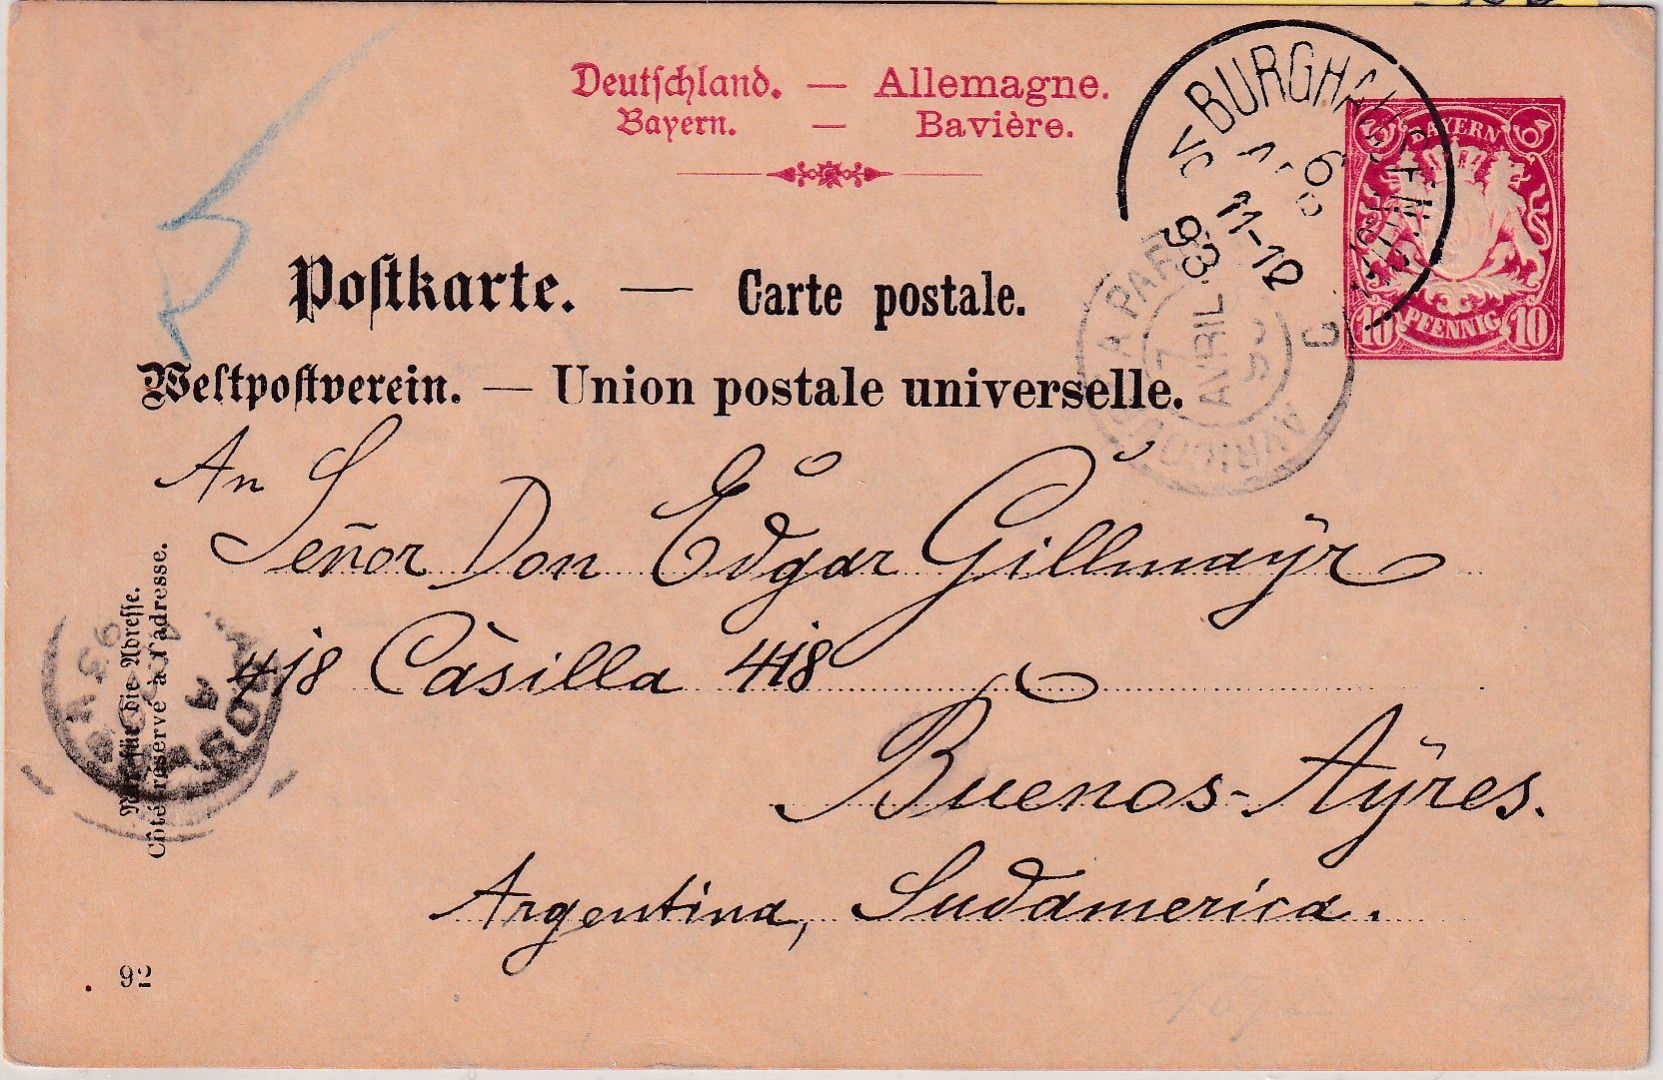 Deutschland. — Allemagne.
Bayern. — Bavière.
BAYERN
10 PFENNIG 10
6
11-12
93
Postkarte. — Carte postale.
Weltpostverein. — Union postale universelle.
7
AVRIL
An
Señor Don Edgar Gillmaÿr
418 Càsilla 418
Buenos-Aÿres.
Argentina, Sudamerica.
Nur für die Adresse.
Côté réservé à l'adresse.
93
92